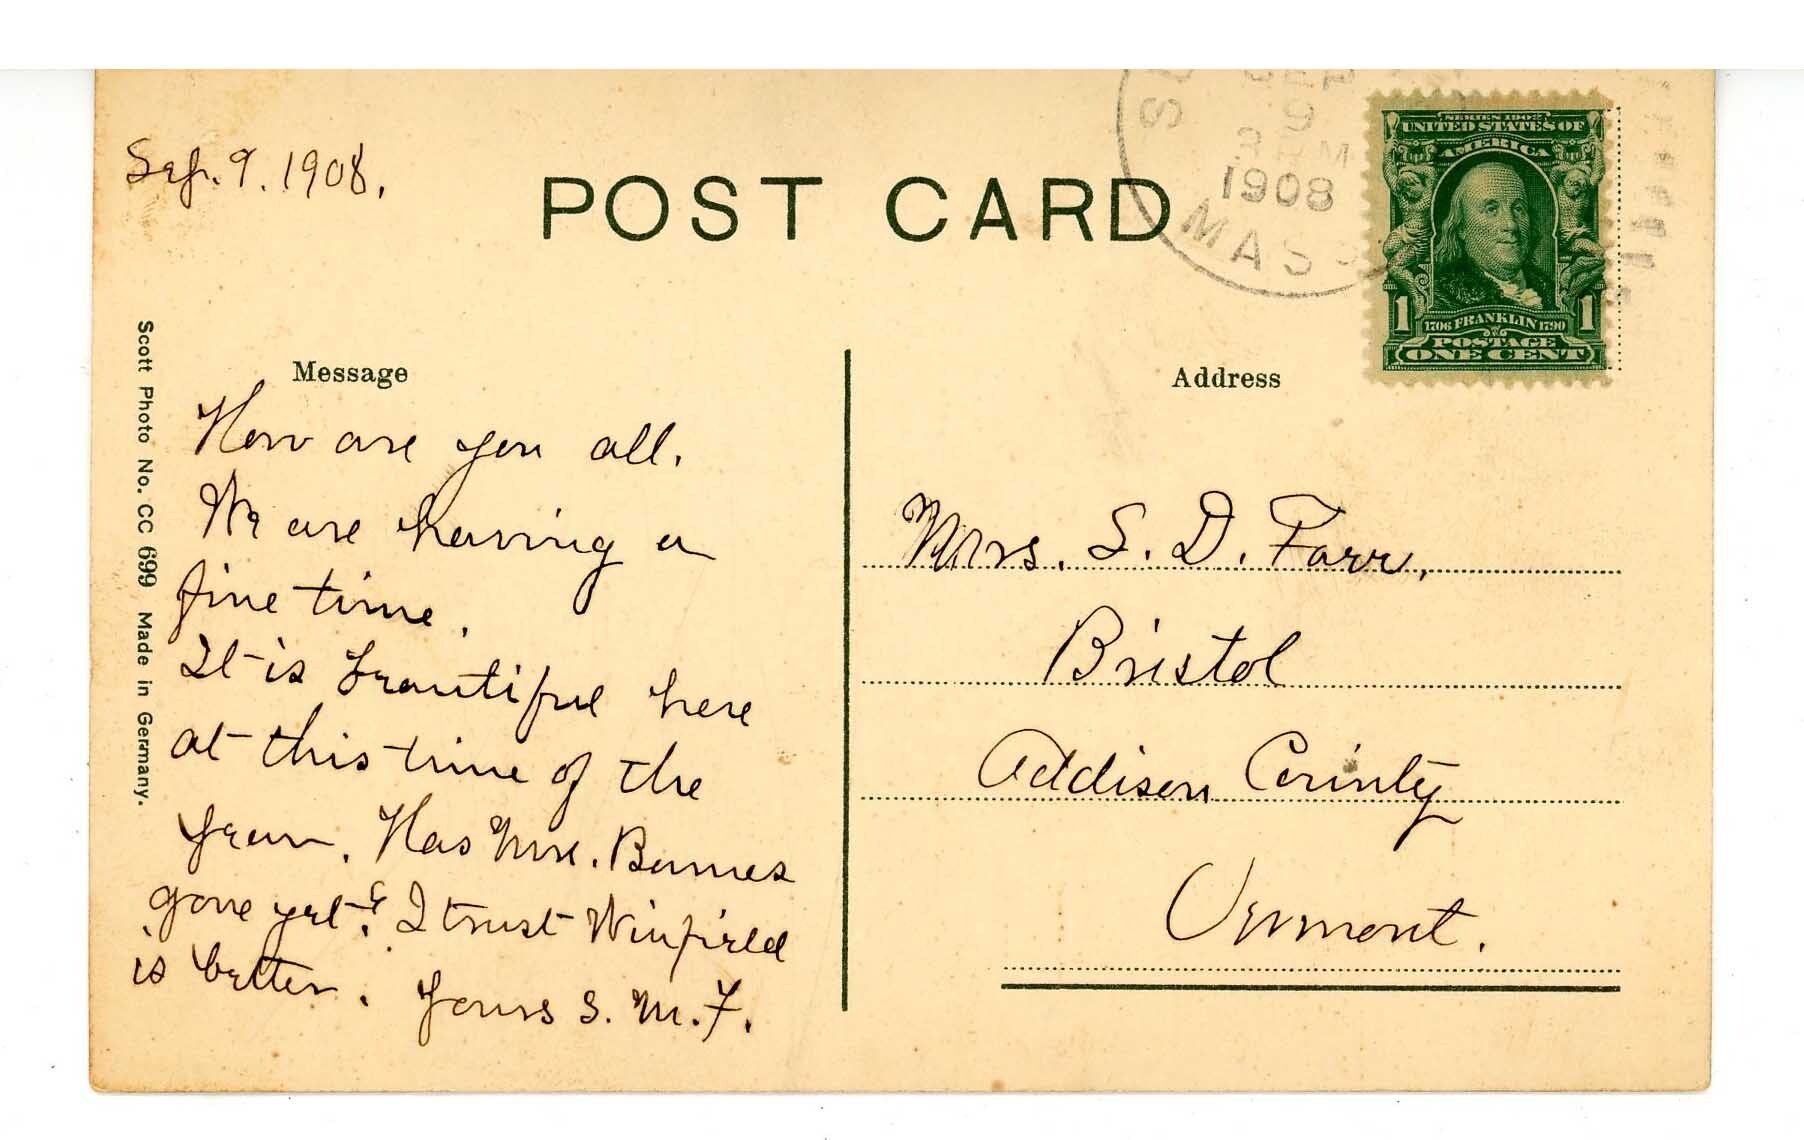 Sep. 9. 1908.
POST CARD
SEP
9
PM
1908
MASS
SERIES 1902
UNITED STATES OF
AMERICA
1 1
1706 FRANKLIN 1790
POSTAGE
ONE CENT
Scott Photo No. CC 699 Made in Germany.
Message
How are you all.
We are having a
fine time.
It is beautiful here
at this time of the
year. Has Mrs. Barnes
gone yet? I trust Winfield
is better. Yours S. M. F.
Address
Mrs. S. D. Farr,
Bristol
Addison County
Vermont.